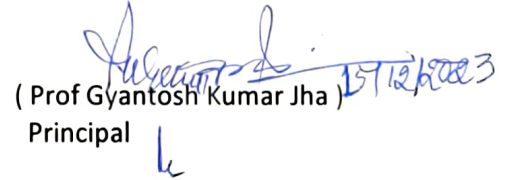 15/12/2023
( Prof Gyantosh Kumar Jha )
Principal